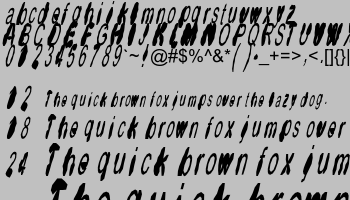 abcdefghijklmnopqrstuvwxyz
ABCDEFGHIJKLMNOPQRSTUVWX
0123456789`~!@#$%^&*()-_+=>,<.[]{}|
12 The quick brown fox jumps over the lazy dog.
18 The quick brown fox jumps over
24 The quick brown fox jum
The quick